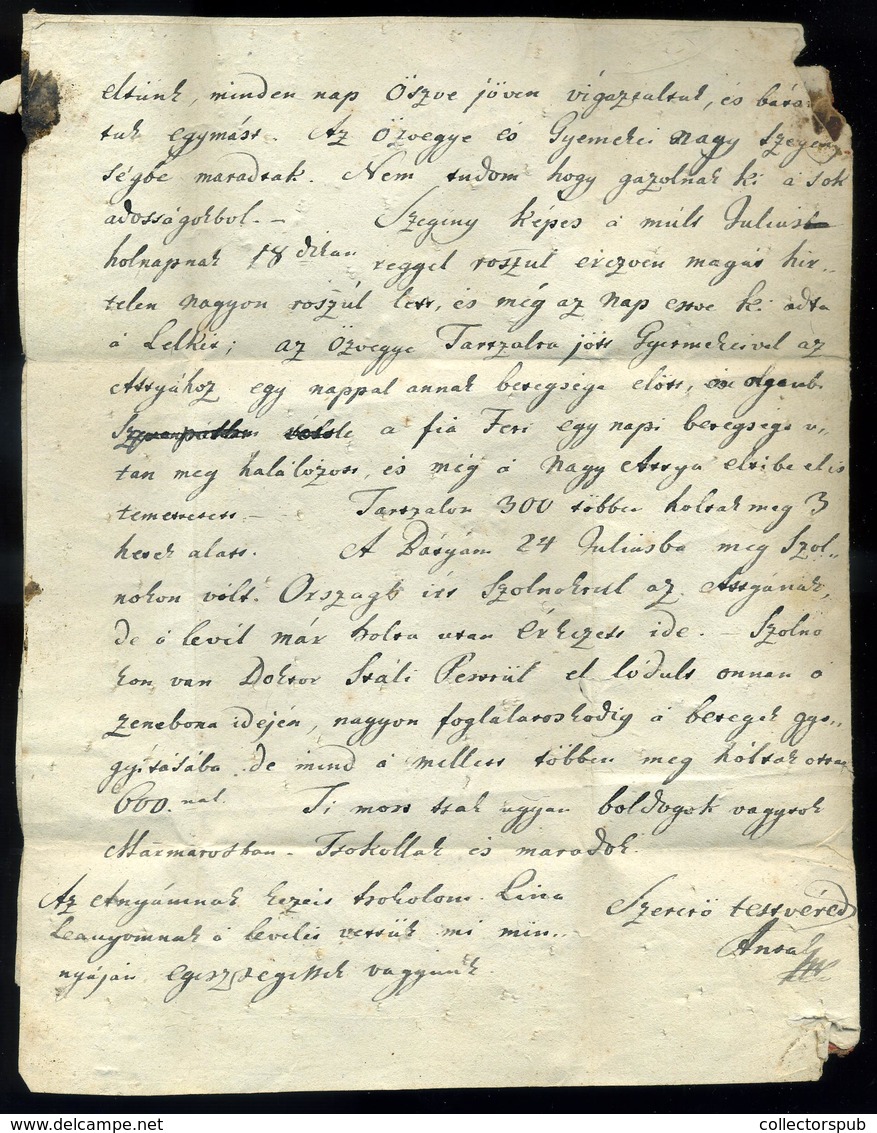 eltünk, minden nap Öszve jöven vigasztaltuk, és bará
tuk egymást. Az Özvegye és Gyemekei nagy Szegeny
ségbe maradtak. Nem tudom hogy gazolnak ki á sok
adosságokbol. — Szegeny Képes á múlt Julius
holnapnak 18 dikan reggel roszul érezven magát hir„
telen nagyon roszúl lett, és még az nap estve ki adta
á Lelkét; az Özvegye Tartzalra jött Gyermekeivel az
Attyához egy nappal annak betegsége elött,
a fia Feri egy napi betegsége u„
tan meg halálozott, és még á Nagy Attya eltibe el is
temettetett. — Tartzalon 300 többen holtak meg 3
hetek alatt. A Bátyám 24 Juliusba meg Szol„
nokon vólt. Orszagh irt Szolnokrul az Attyának,
de á levél már holta utan érkezett ide. Szolno
kon van Doktor Stáli Pestrül el lódult onnan á
zenebona idején, nagyon foglalatoskodig á betegek gyo„
gyitásába de mind á mellett többen meg hóltak ottan
600.nál. Ti most tsak ugyan boldogok vagytok
Marmarosban. Tsokollak és maradok.
Az Anyámnak kezeit tsokolom. Lina
Leanyomnak á levelét vettük mi min„
nyájan egészségessek vagyunk.
Szeretö testvéred
Antal
collectorspub